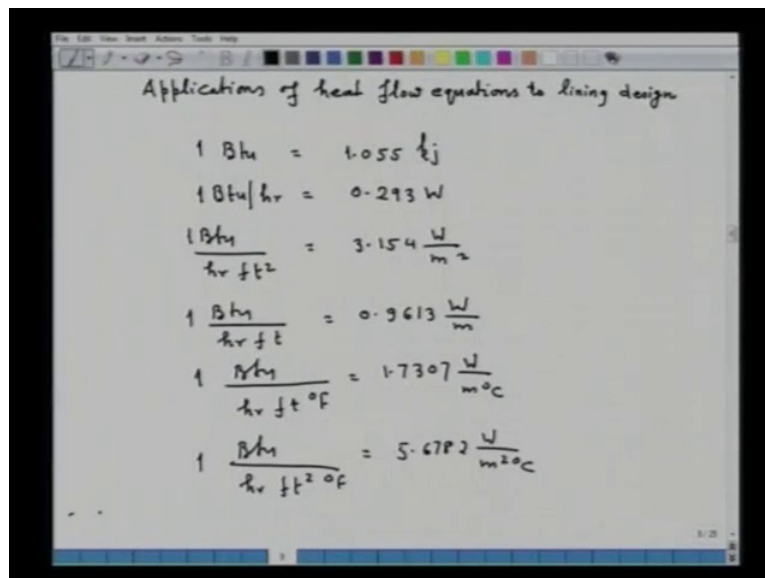 File Edit View Insert Actions Tools Help
Applications of heat flow equations to lining design
1 Btu = 1.055 kj
1 Btu/hr = 0.293 W
1 Btu / hr ft² = 3.154 W / m²
1 Btu / hr ft = 0.9613 W / m
1 Btu / hr ft °F = 1.7307 W / m °C
1 Btu / hr ft² °F = 5.6782 W / m² °C